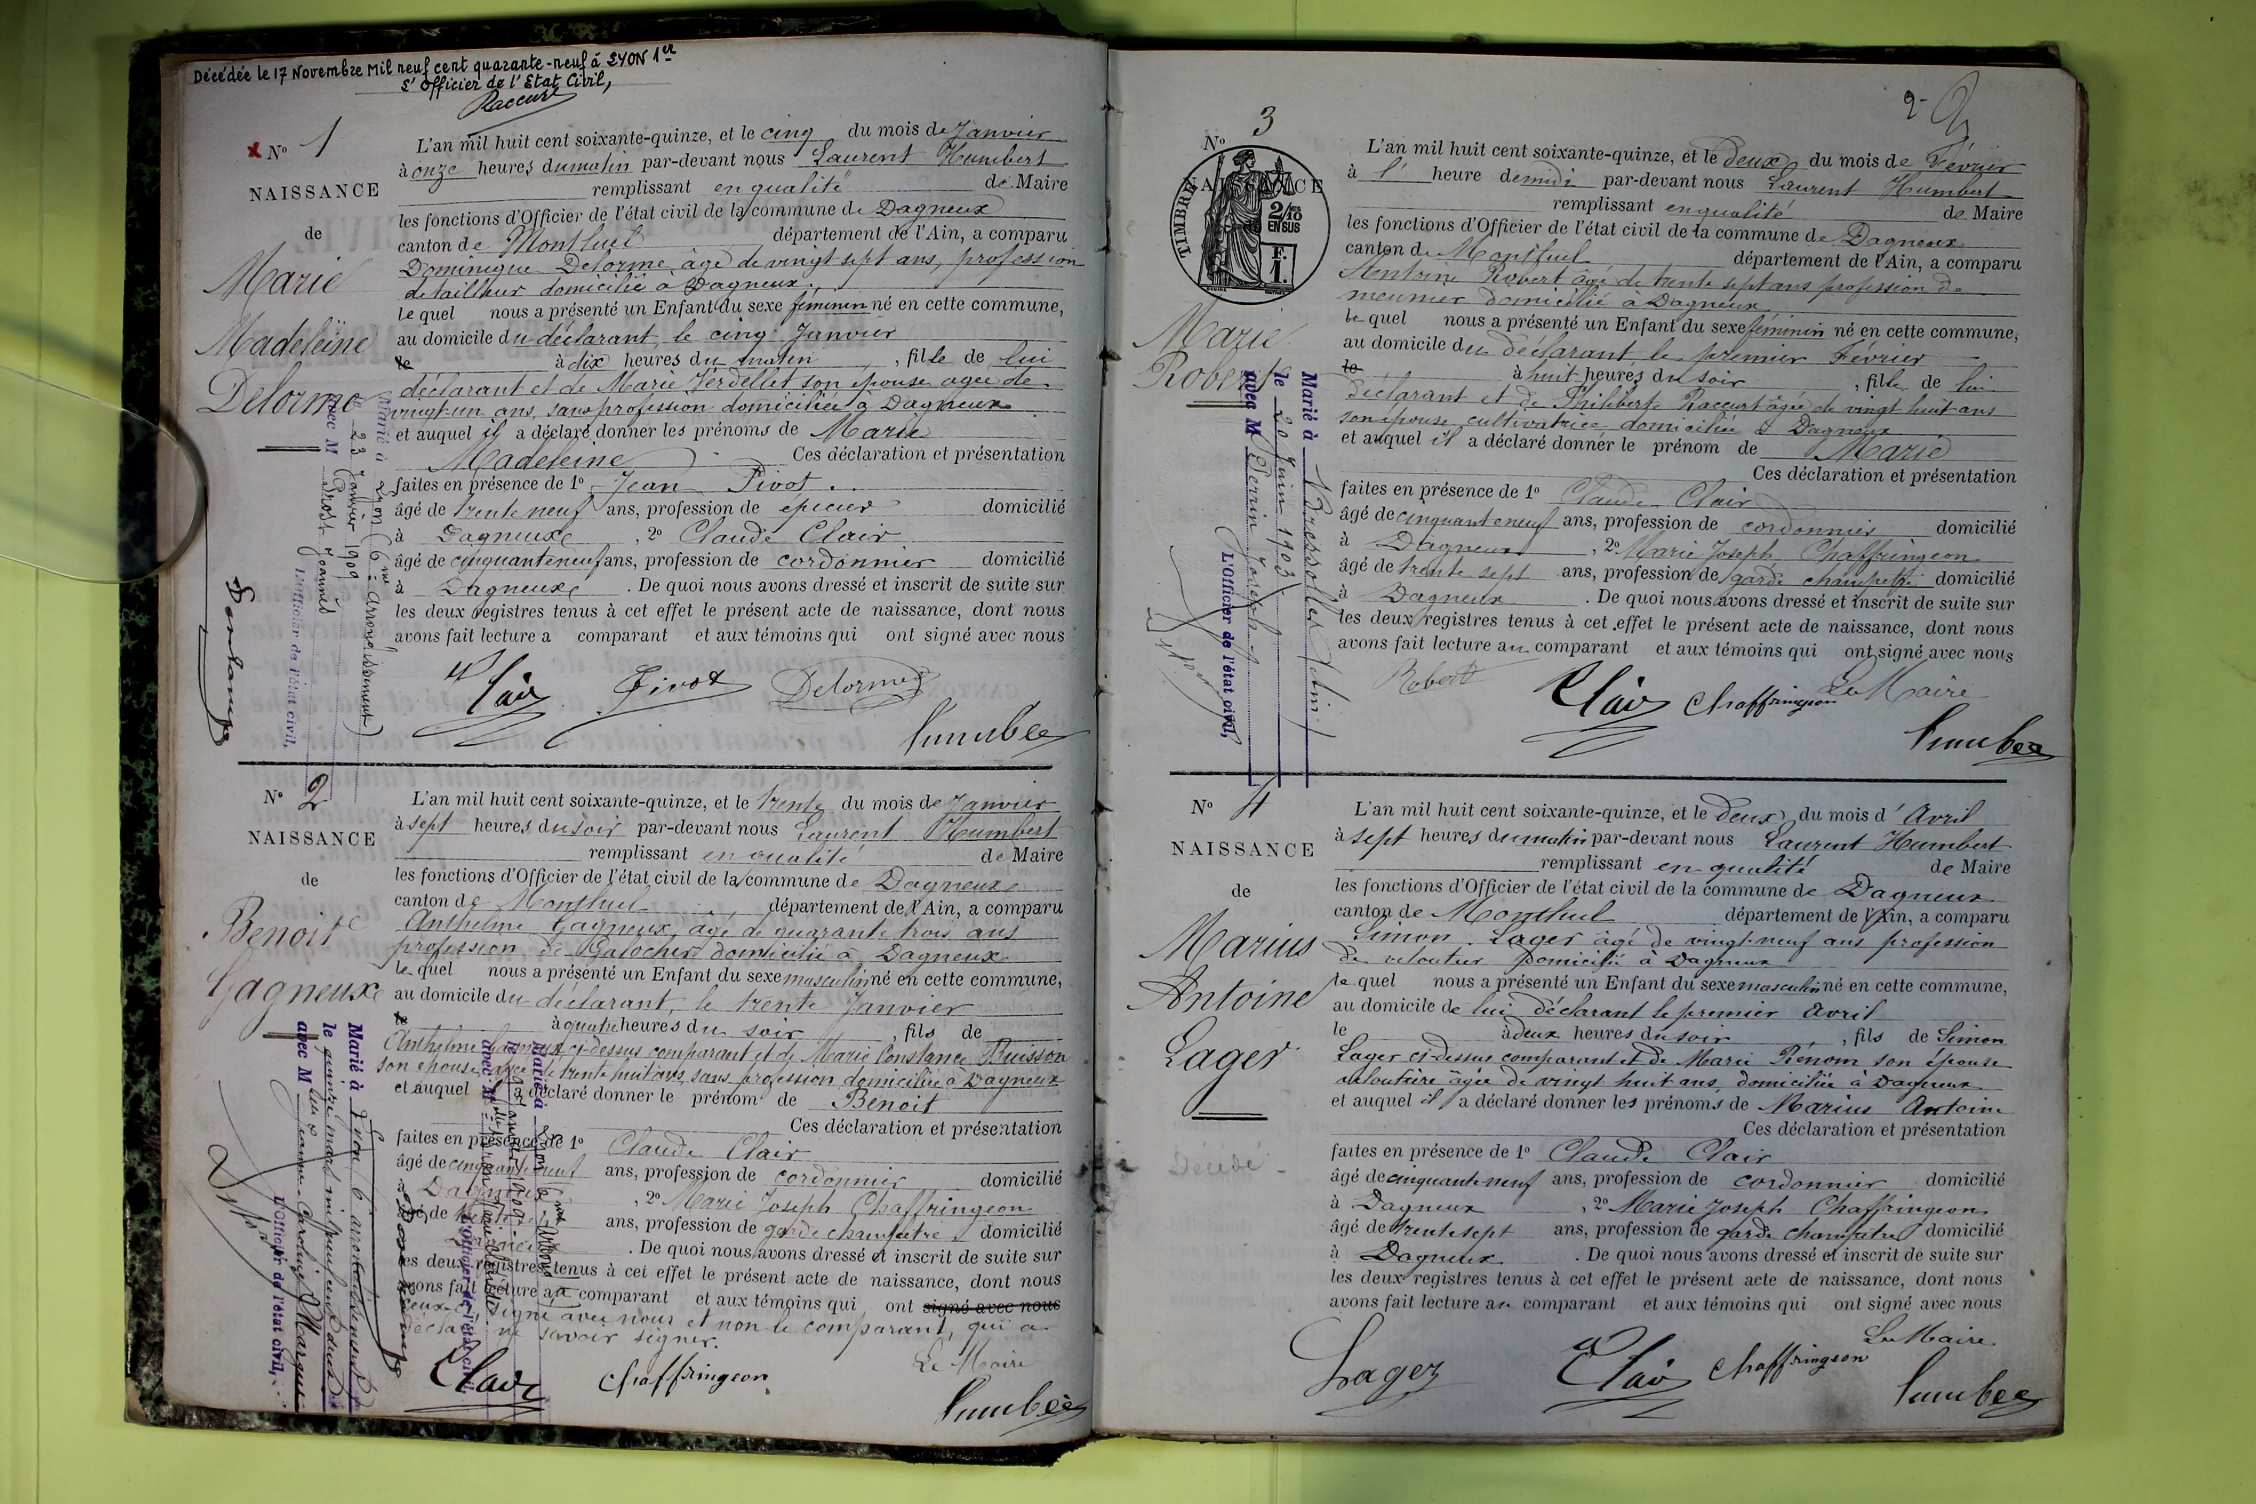 Décédée le 17 Novembre Mil neuf cent quarante-neuf à LYON 1er
L'Officier de l'Etat Civil,
Raccurt
N° 1
NAISSANCE
de
Marie
Madeleine
Delorme
L'an mil huit cent soixante-quinze, et le cinq du mois de Janvier
à onze heures du matin par-devant nous Laurent Humbert
remplissant en qualité de Maire
les fonctions d'Officier de l'état civil de la commune de Dagneux
canton de Montluel département de l'Ain, a comparu
Dominique Delorme, âgé de vingt sept ans, profession
de tailleur domicilié à Dagneux.
le quel nous a présenté un Enfant du sexe féminin né en cette commune,
au domicile du déclarant, le cinq Janvier
le à dix heures du matin, fille de lui
déclarant et de Marie Verdellet son épouse agée de
vingt-un ans, sans profession domiciliée à Dagneux
et auquel il a déclaré donner les prénoms de Marie
Madeleine Ces déclaration et présentation
faites en présence de 1° Jean Pivot.
âgé de trente neuf ans, profession de épicier domicilié
à Dagneux, 2° Claude Clair
âgé de cinquante neuf ans, profession de cordonnier domicilié
à Dagneux. De quoi nous avons dressé et inscrit de suite sur
les deux registres tenus à cet effet le présent acte de naissance, dont nous
avons fait lecture a comparant et aux témoins qui ont signé avec nous
Clair Pivot Delorme
Humbert
Marié à Lyon (6me arrondissement)
le 23 Janvier 1909
avec M Drost Joannès
L'Officier de l'état civil,
N° 2
NAISSANCE
de
Benoit
Gagneux
L'an mil huit cent soixante-quinze, et le trente du mois de Janvier
à sept heures du soir par-devant nous Laurent Humbert
remplissant en qualité de Maire
les fonctions d'Officier de l'état civil de la commune de Dagneux
canton de Montluel département de l'Ain, a comparu
Anthelme Gagneux, âgé de quarante trois ans
profession de Galocher domicilié à Dagneux
le quel nous a présenté un Enfant du sexe masculin né en cette commune,
au domicile du déclarant, le trente Janvier
le à quatre heures du soir, fils de
Anthelme Gagneux ci-dessus comparant et de Marie Constance Buisson
son épouse, agée de trente huit ans, sans profession, domiciliée à Dagneux
et auquel il a déclaré donner le prénom de Benoit
Ces déclaration et présentation
faites en présence de 1° Claude Clair
âgé de cinquante neuf ans, profession de cordonnier domicilié
à Dagneux, 2° Marie Joseph Chaffringeon
âgé de ans, profession de garde champêtre domicilié
à Dagneux. De quoi nous avons dressé et inscrit de suite sur
les deux registres tenus à cet effet le présent acte de naissance, dont nous
avons fait lecture au comparant et aux témoins qui ont signé avec nous
ceux-ci signé avec nous et non le comparant, qui a
déclaré ne savoir signer.
Le Maire
Clair Chaffringeon
Humbert
Marié à Lyon 6 arrondissement
le quinze mars mil neuf cent
avec M Jeanne Caroline Margue
L'Officier de l'état civil,
Marié à Lyon
le 1909
avec M
L'Officier de l'état civil,
2
N° 3
NAISSANCE
TIMBRE
2/10 EN SUS
1 F.
Marie
Robert
L'an mil huit cent soixante-quinze, et le deux du mois de Février
à l' heure de midi par-devant nous Laurent Humbert
remplissant en qualité de Maire
les fonctions d'Officier de l'état civil de la commune de Dagneux
canton de Montluel département de l'Ain, a comparu
Robert âgé de trente sept ans profession de
meunier domicilié à Dagneux
le quel nous a présenté un Enfant du sexe féminin né en cette commune,
au domicile du déclarant le premier Février
le à huit heures du soir, fille de lui
déclarant et de Philiberte Raccurt âgée de vingt huit ans
son épouse cultivatrice domiciliée à Dagneux
et auquel il a déclaré donner le prénom de Marie
Ces déclaration et présentation
faites en présence de 1° Claude Clair
âgé de cinquante neuf ans, profession de cordonnier domicilié
à Dagneux, 2° Marie Joseph Chaffringeon
âgé de trente sept ans, profession de garde champêtre domicilié
à Dagneux. De quoi nous avons dressé et inscrit de suite sur
les deux registres tenus à cet effet le présent acte de naissance, dont nous
avons fait lecture au comparant et aux témoins qui ont signé avec nous
Robert Clair Chaffringeon Le Maire
Humbert
Marié à Bressolles (Ain)
le 20 Juin 1903
avec M Perrin Joseph
L'Officier de l'état civil,
N° 4
NAISSANCE
de
Marius
Antoine
Lager
Décédé
L'an mil huit cent soixante-quinze, et le deux du mois d'Avril
à sept heures du matin par-devant nous Laurent Humbert
remplissant en qualité de Maire
les fonctions d'Officier de l'état civil de la commune de Dagneux
canton de Montluel département de l'Ain, a comparu
Simon Lager âgé de vingt-neuf ans profession
de veloutier domicilié à Dagneux
le quel nous a présenté un Enfant du sexe masculin né en cette commune,
au domicile de lui déclarant le premier Avril
le à deux heures du soir, fils de Simon
Lager ci-dessus comparant et de Marie Rénom son épouse
veloutière âgée de vingt huit ans, domiciliée à Dagneux
et auquel il a déclaré donner les prénoms de Marius Antoine
Ces déclaration et présentation
faites en présence de 1° Claude Clair
âgé de cinquante neuf ans, profession de cordonnier domicilié
à Dagneux, 2° Marie Joseph Chaffringeon
âgé de trente sept ans, profession de garde champêtre domicilié
à Dagneux. De quoi nous avons dressé et inscrit de suite sur
les deux registres tenus à cet effet le présent acte de naissance, dont nous
avons fait lecture au comparant et aux témoins qui ont signé avec nous
Le Maire
Lager Clair Chaffringeon
Humbert